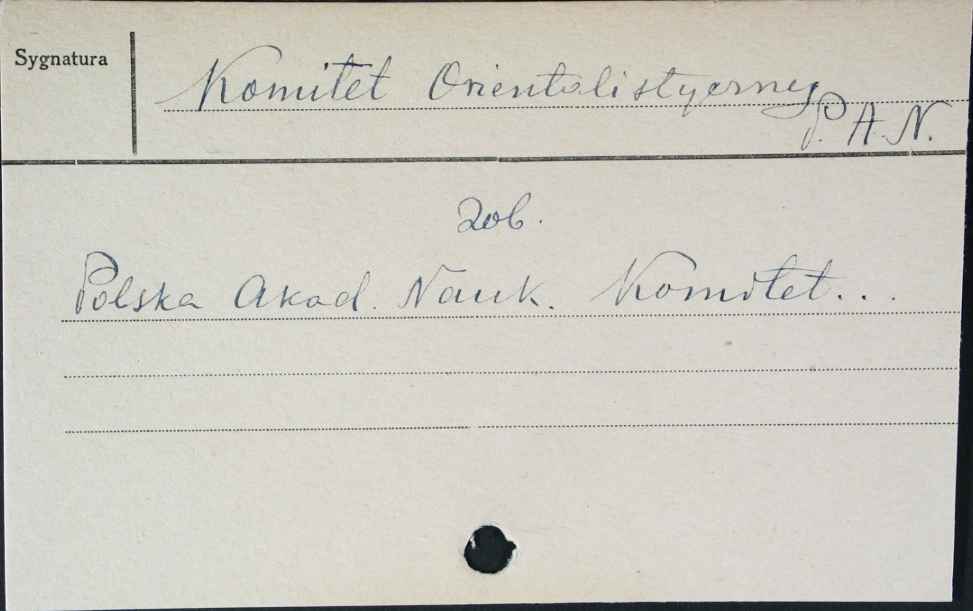 Sygnatura
Komitet Orientalistyczny
P. A. N.
Zob.
Polska Akad. Nauk. Komitet...